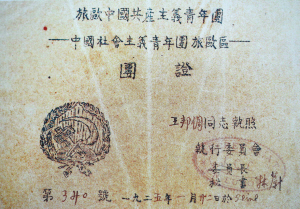 旅歐中國共産主義青年團
—中國社會主義青年團旅歐區—
團證
王邦倜同志執照
執行委員會
委員長
秘書
第 340 號 一九二五年一月廿二日於